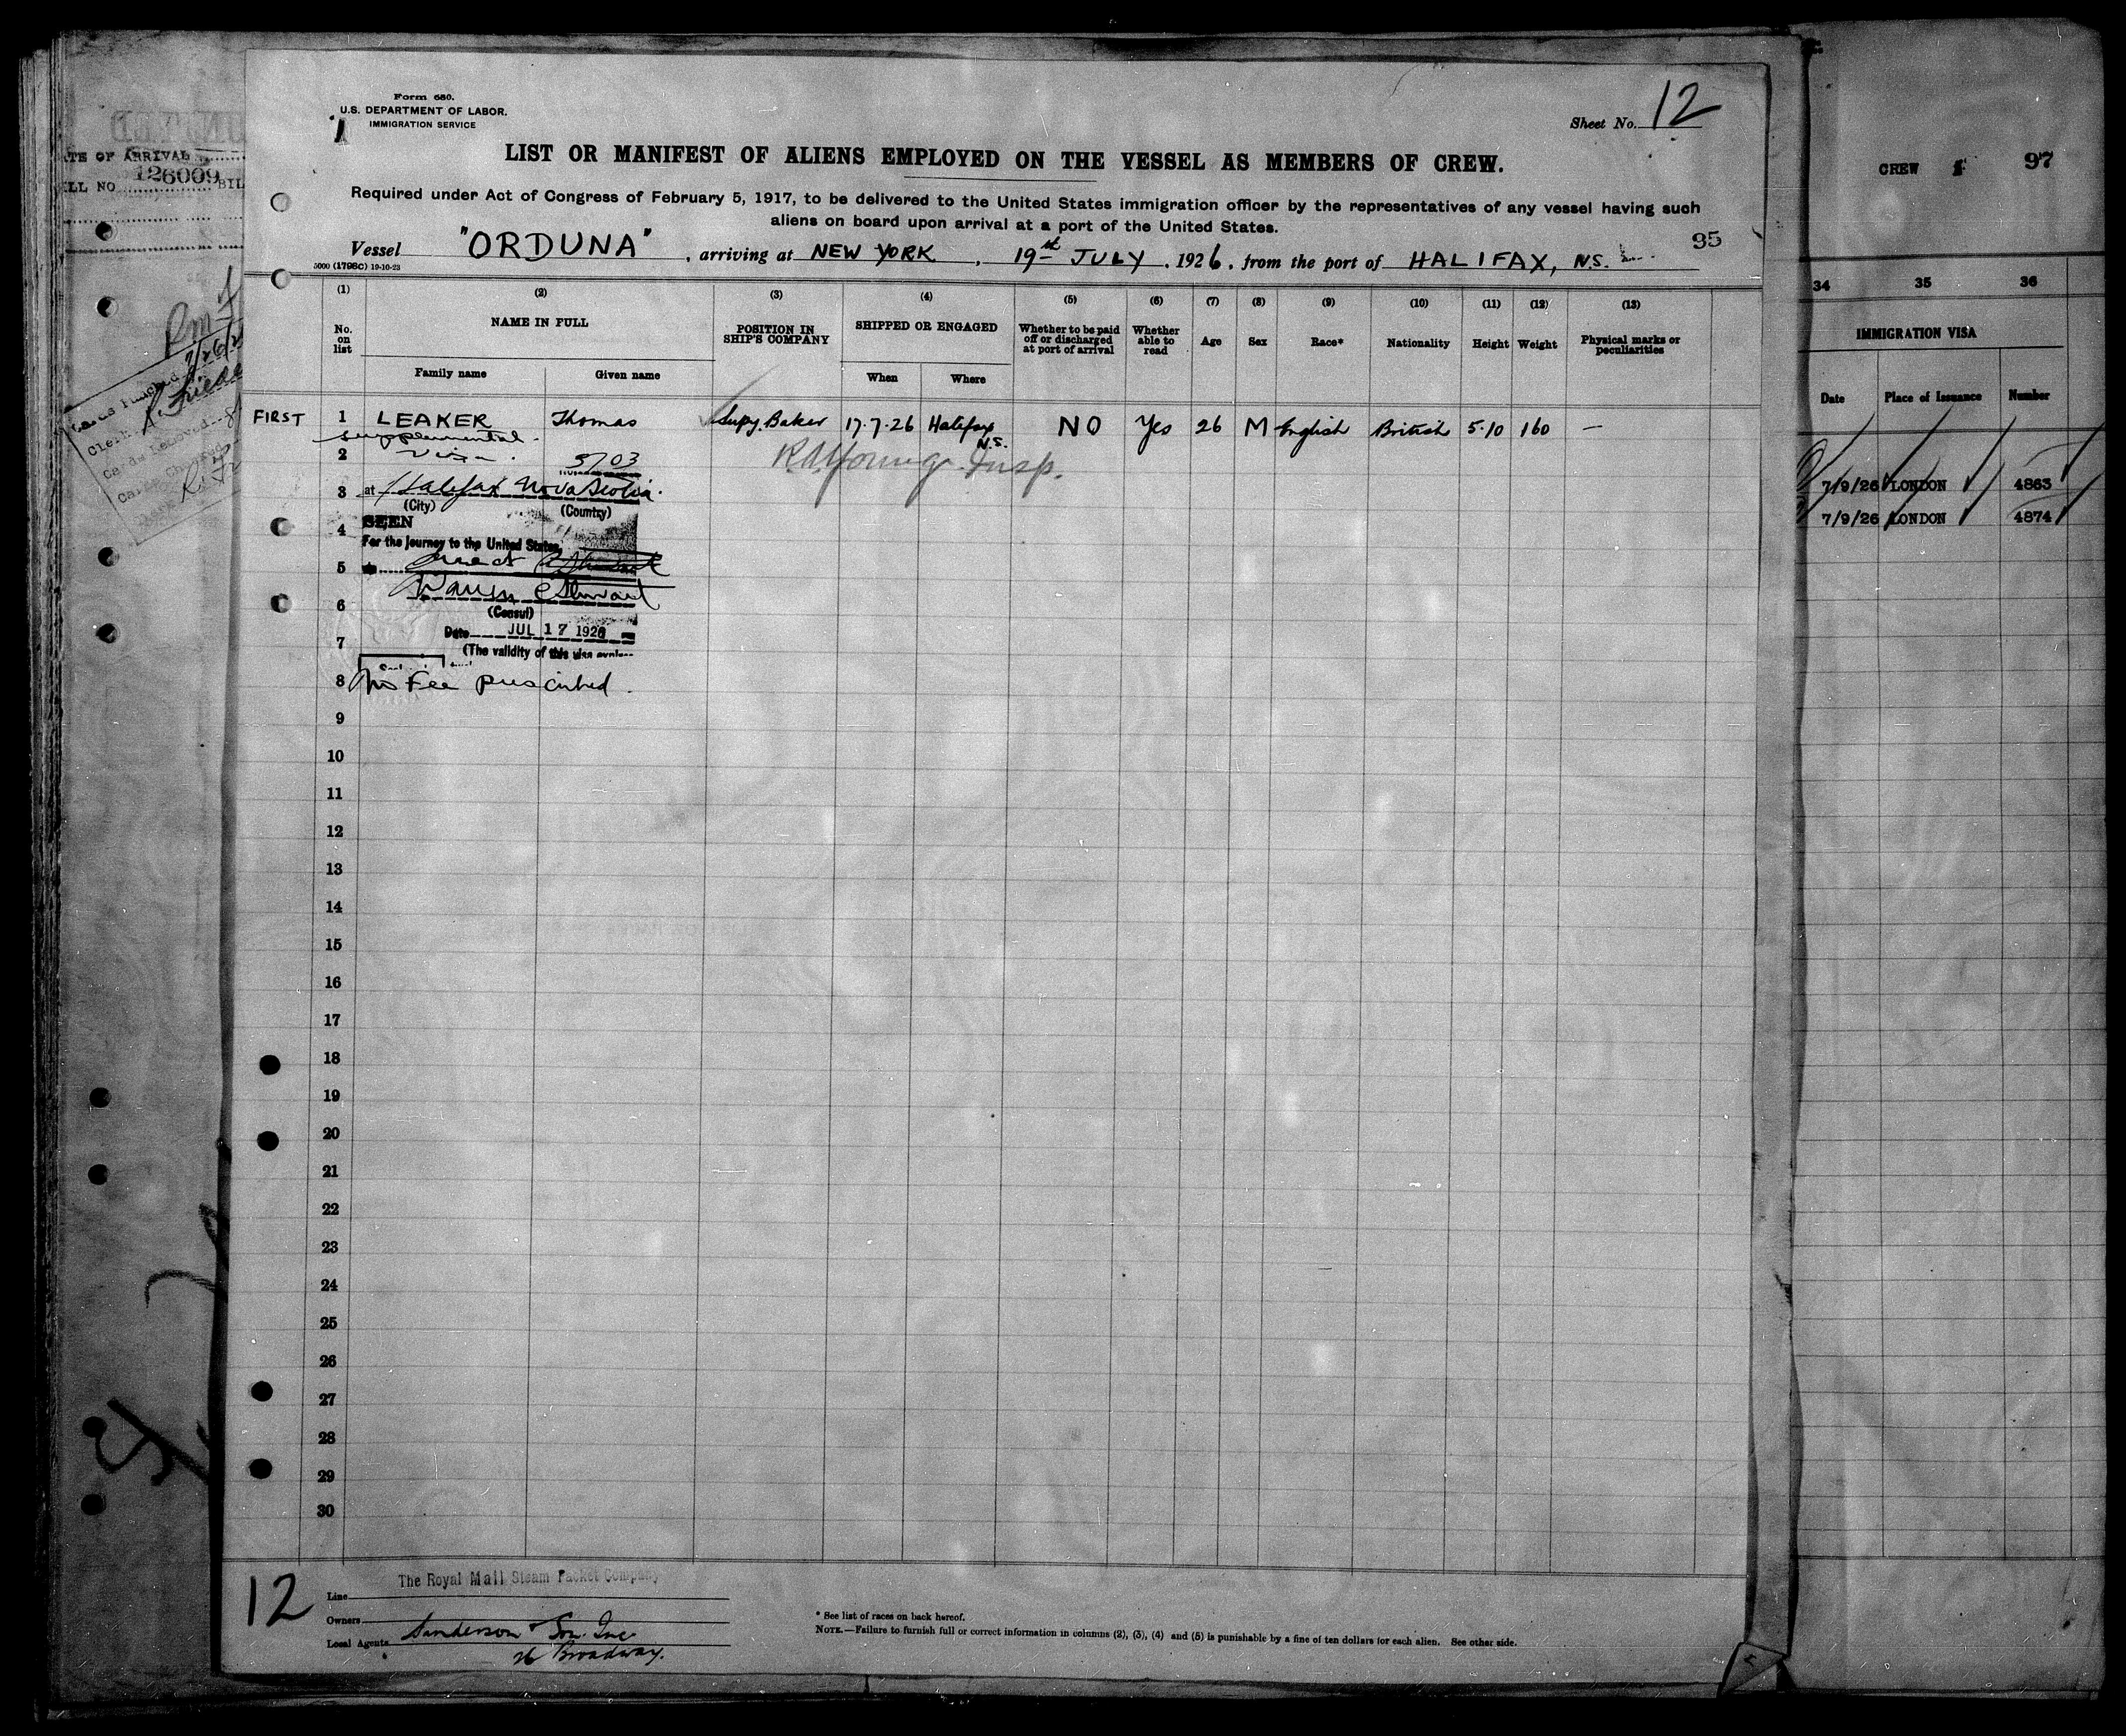 Form 680.
U.S. DEPARTMENT OF LABOR.
IMMIGRATION SERVICE
1
Sheet No. 12
LIST OR MANIFEST OF ALIENS EMPLOYED ON THE VESSEL AS MEMBERS OF CREW.
Required under Act of Congress of February 5, 1917, to be delivered to the United States immigration officer by the representatives of any vessel having such
aliens on board upon arrival at a port of the United States.
95
Vessel "ORDUNA", arriving at NEW YORK, 19th JULY, 1926, from the port of HALIFAX, N.S.
5000 (1798C) 19-10-23
(1) (2) (3) (4) (5) (6) (7) (8) (9) (10) (11) (12) (13)
No. on list NAME IN FULL POSITION IN SHIP'S COMPANY SHIPPED OR ENGAGED Whether to be paid off or discharged at port of arrival Whether able to read Age Sex Race* Nationality Height Weight Physical marks or peculiarities
Family name Given name When Where
FIRST 1 LEAKER Thomas Supy. Baker 17.7.26 Halifax N.S. NO Yes 26 M English British 5.10 160 —
supplemental
2 Visa. 5703
R A Young Insp.
3 at Halifax Nova Scotia.
(City) (Country)
4 SEEN
For the journey to the United States,
5
6
(Consul)
Date JUL 17 1926
7 (The validity of this visa
8 No Fee prescribed.
9
10
11
12
13
14
15
16
17
18
19
20
21
22
23
24
25
26
27
28
29
30
12
Line The Royal Mail Steam Packet Company
Owners
Local Agents Sanderson & Son. Inc
26 Broadway.
* See list of races on back hereof.
NOTE.—Failure to furnish full or correct information in columns (2), (3), (4) and (5) is punishable by a fine of ten dollars for each alien. See other side.
TE OF ARRIVAL
LL NO 126009 BIL
CREW 97
34 35 36
IMMIGRATION VISA
Date Place of Issuance Number
7/9/26 LONDON 4863
7/9/26 LONDON 4874